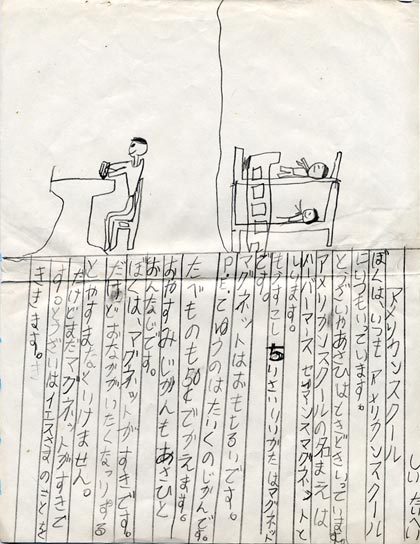 しいたいい
アメリカンスクール
ぼくは、いつもアメリカンスクール
にいつもいっています。
とうさいやあさひはときどきいっています。
アメリカンスクールの名まえは
ハバーマース ゼイアンスマグネットと
いいます。
もうすこしちいさいいいかたはマグネット
です。
マグネットはおもしろいです。
P.E.でゆうのはたいくのじかんです。
たべものも50¢でかえます。
おやすみじかんもあさひと
おんなじです。
ぼくは、マグネットがすきです。
だけどおなかがいたくなったりする
とやすまなくいけません。
だけどまだマグネットがすきで
す。とうさいはイエスさまのことを
ききます。き